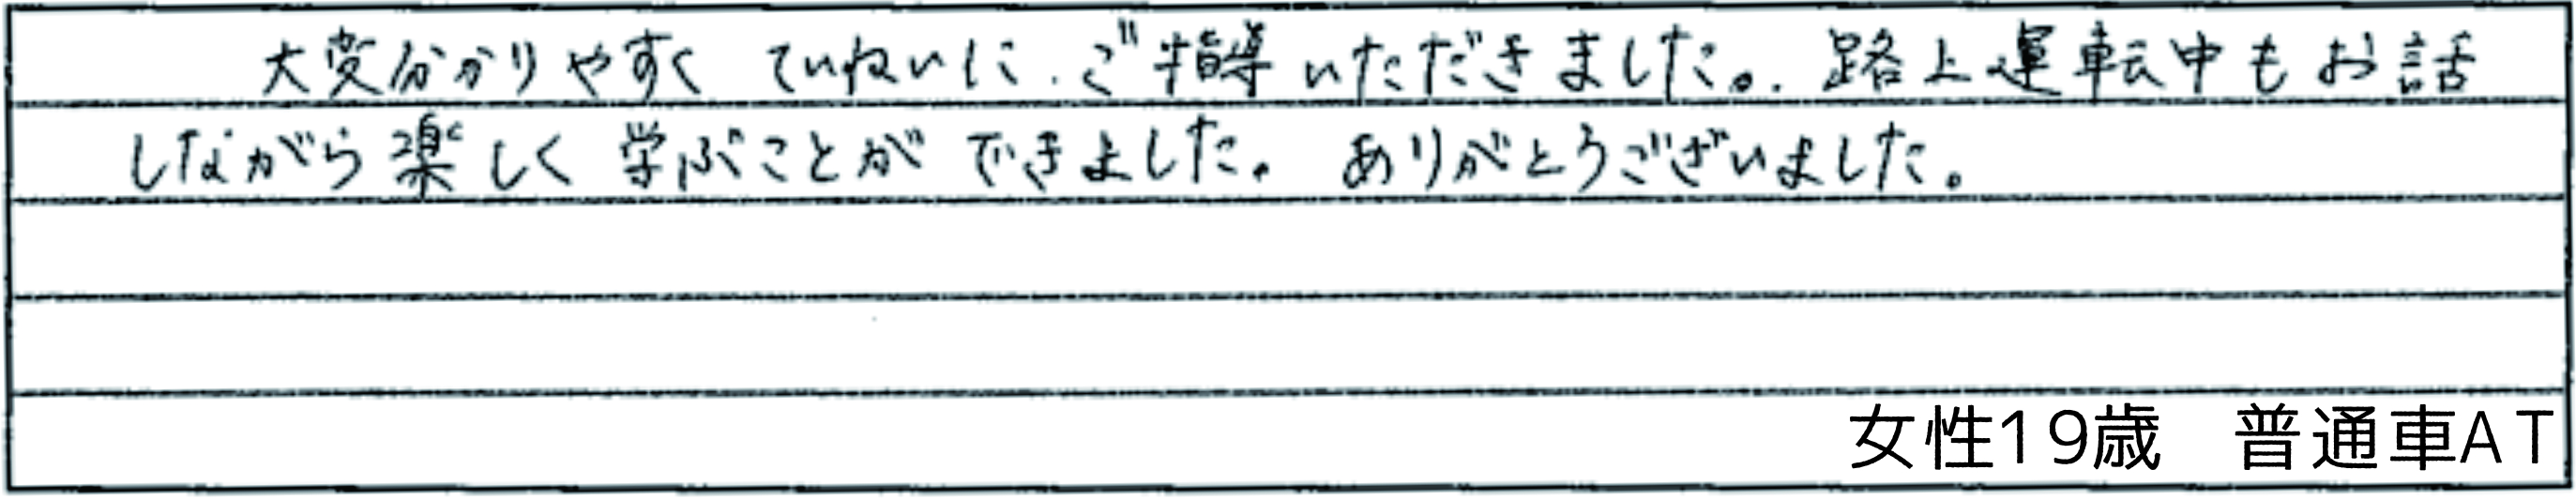 大変分かりやすく ていねいに ご指導いただきました。路上運転中もお話
しながら楽しく学ぶことができました。ありがとうございました。
女性19歳 普通車AT